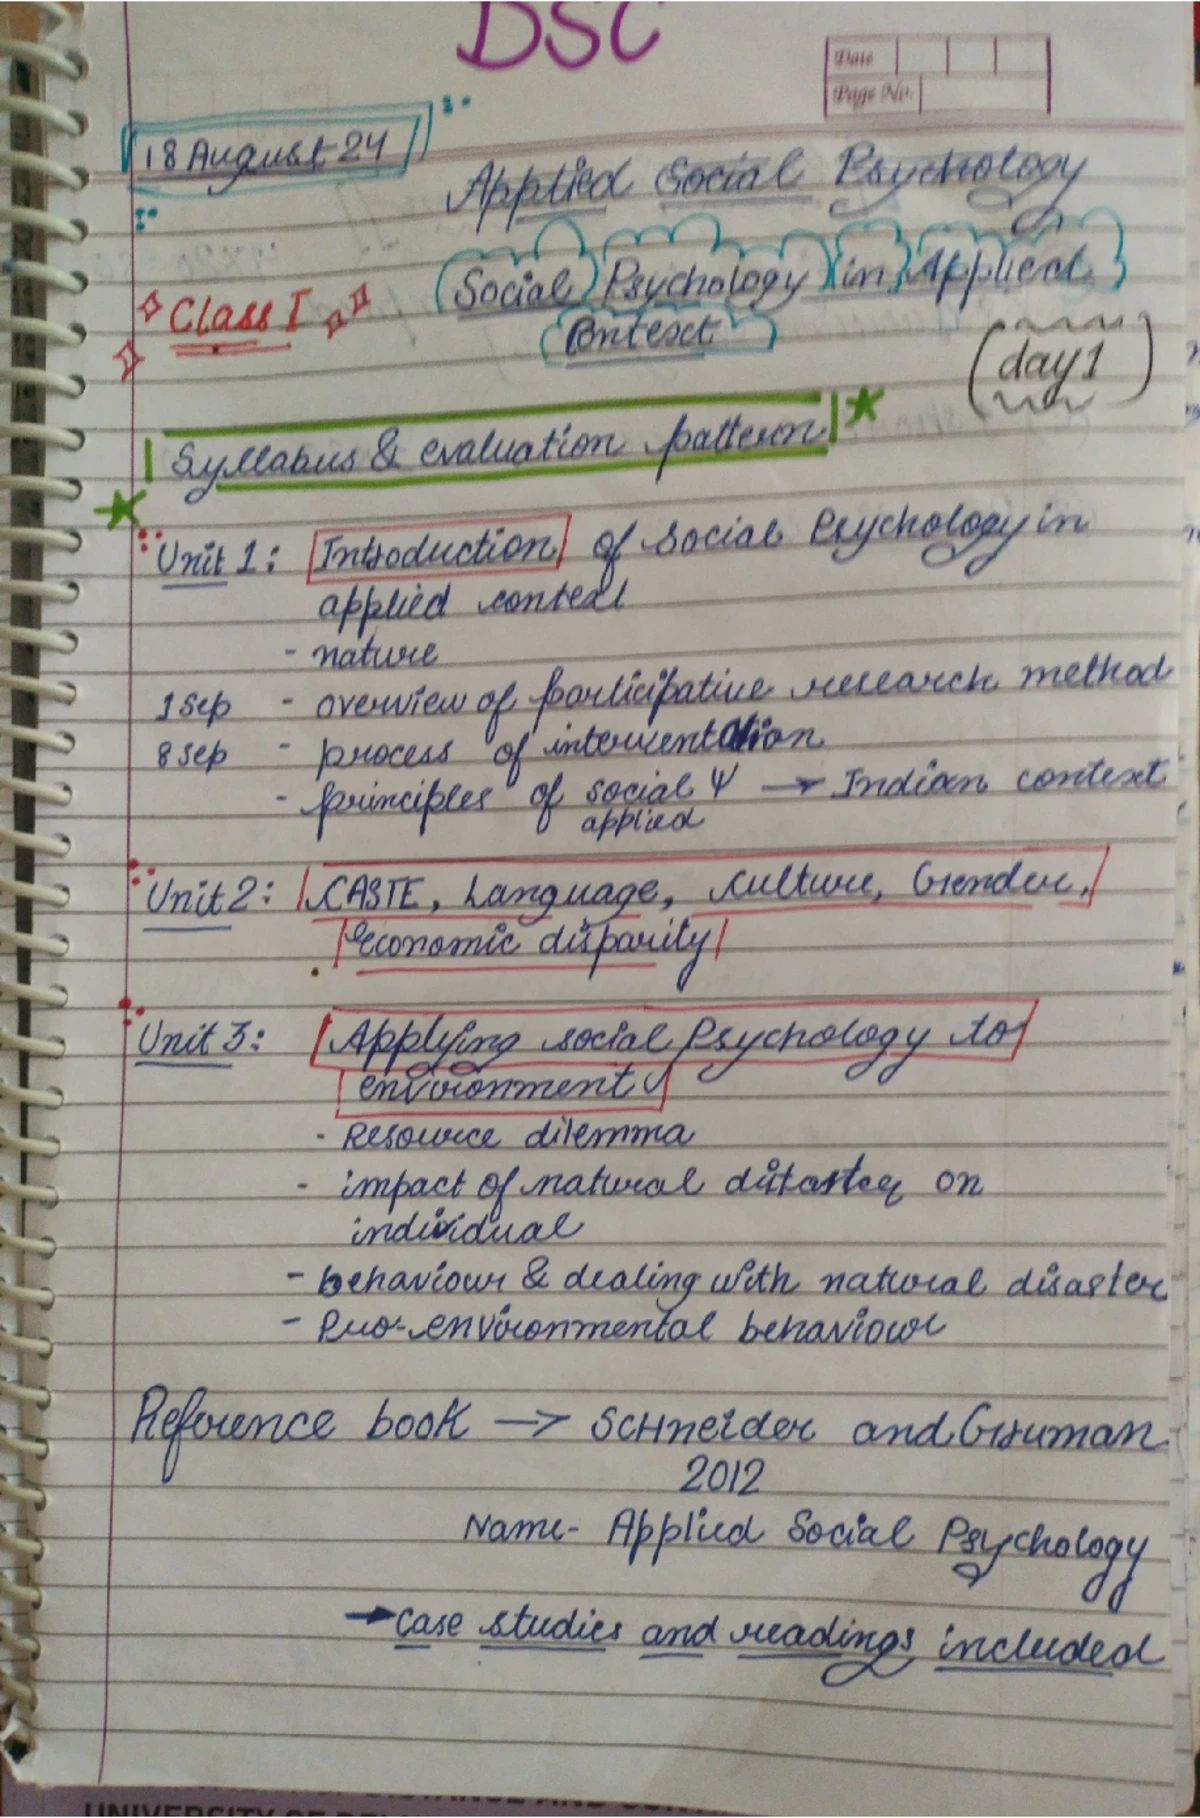 DSC
Date
Page No.
18 August 24
Applied Social Psychology
Social Psychology in Applied
Context
Class I
(day 1)
Syllabus & evaluation pattern
Unit 1: Introduction of Social Psychology in
applied context
- nature
1 Sep - overview of participative research method
8 Sep - process of intervention
- principles of social Ψ → Indian context
applied
Unit 2: CASTE, Language, culture, Gender,
economic disparity
Unit 3: Applying social Psychology to
environment
- Resource dilemma
- impact of natural disaster on
individual
- behaviour & dealing with natural disaster
- Pro-environmental behaviour
Reference book → SCHneider and Gruman
2012
Name- Applied Social Psychology
→ case studies and readings included